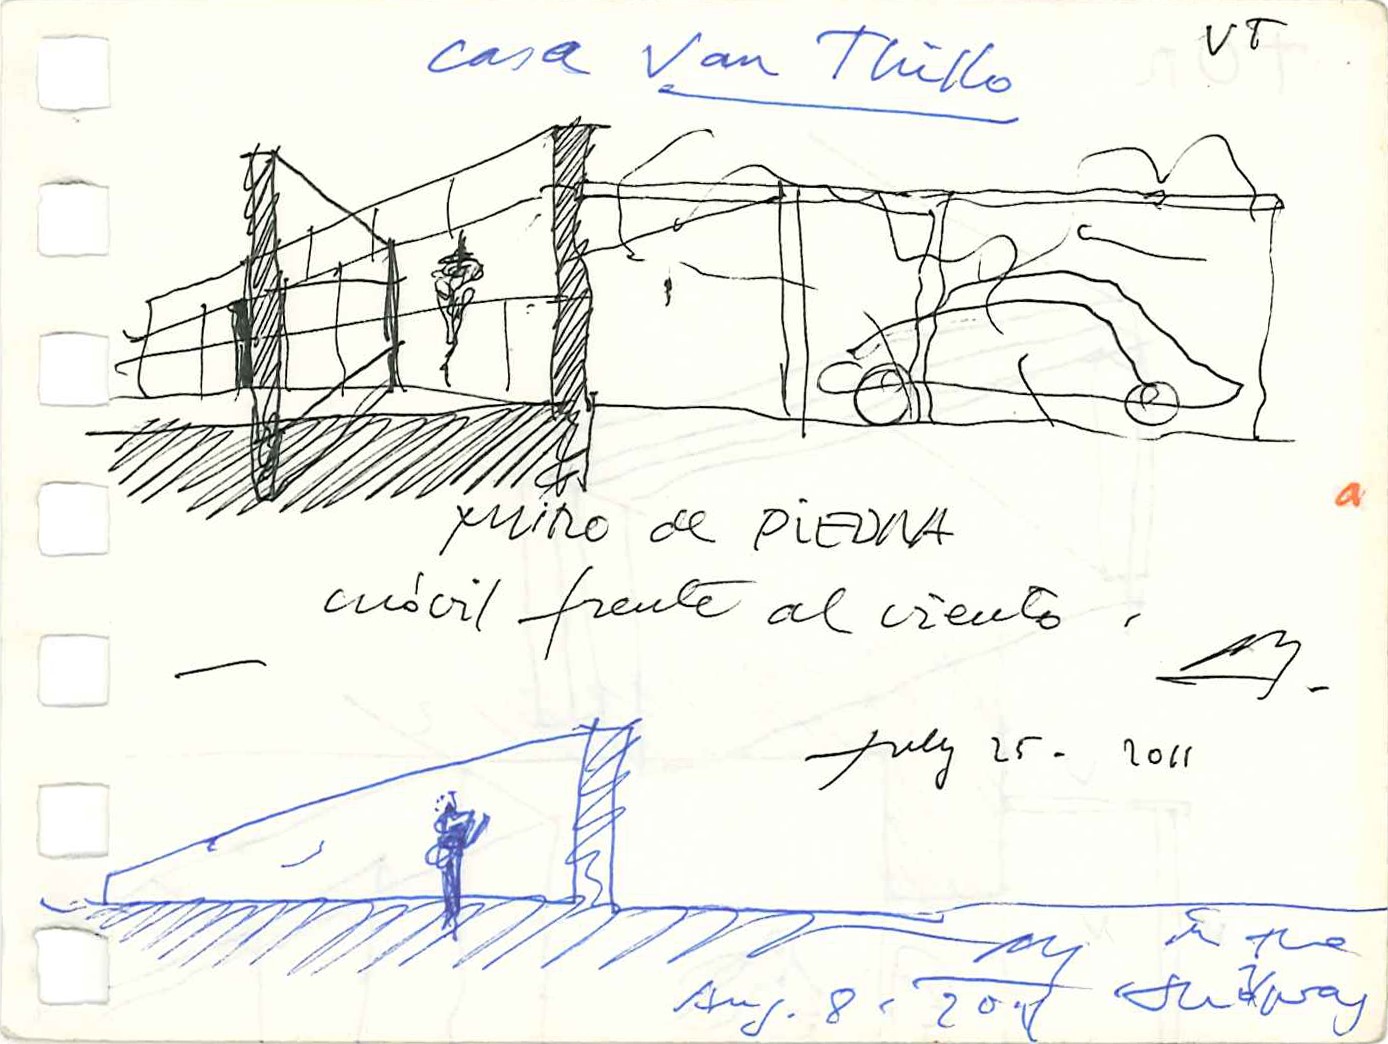 VT
casa Van Thillo
a
muro de PIEDRA
móvil frente al viento.
July 25 - 2011
in the
subway
Aug. 8. 2011